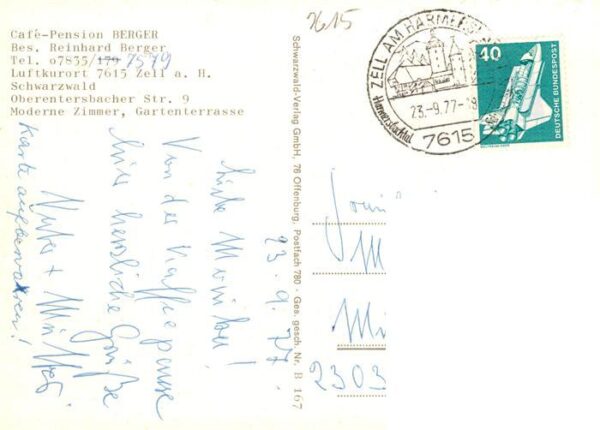 Café-Pension BERGER
Bes. Reinhard Berger
Tel. o7835/179 7579
Luftkurort 7615 Zell a. H.
Schwarzwald
Oberentersbacher Str. 9
Moderne Zimmer, Gartenterrasse
7615
ZELL AM HARMERSBACH
23.-9.77-19
7615
40
DEUTSCHE BUNDESPOST
Schwarzwald-Verlag GmbH, 76 Offenburg, Postfach 780 · Ges. gesch. Nr. B 167
23.9.77.
Liebe Monika!
Von der Kaffeepause
liebe herzliche Grüße
Vater + Mutter
Karte aufbewahren!
2303